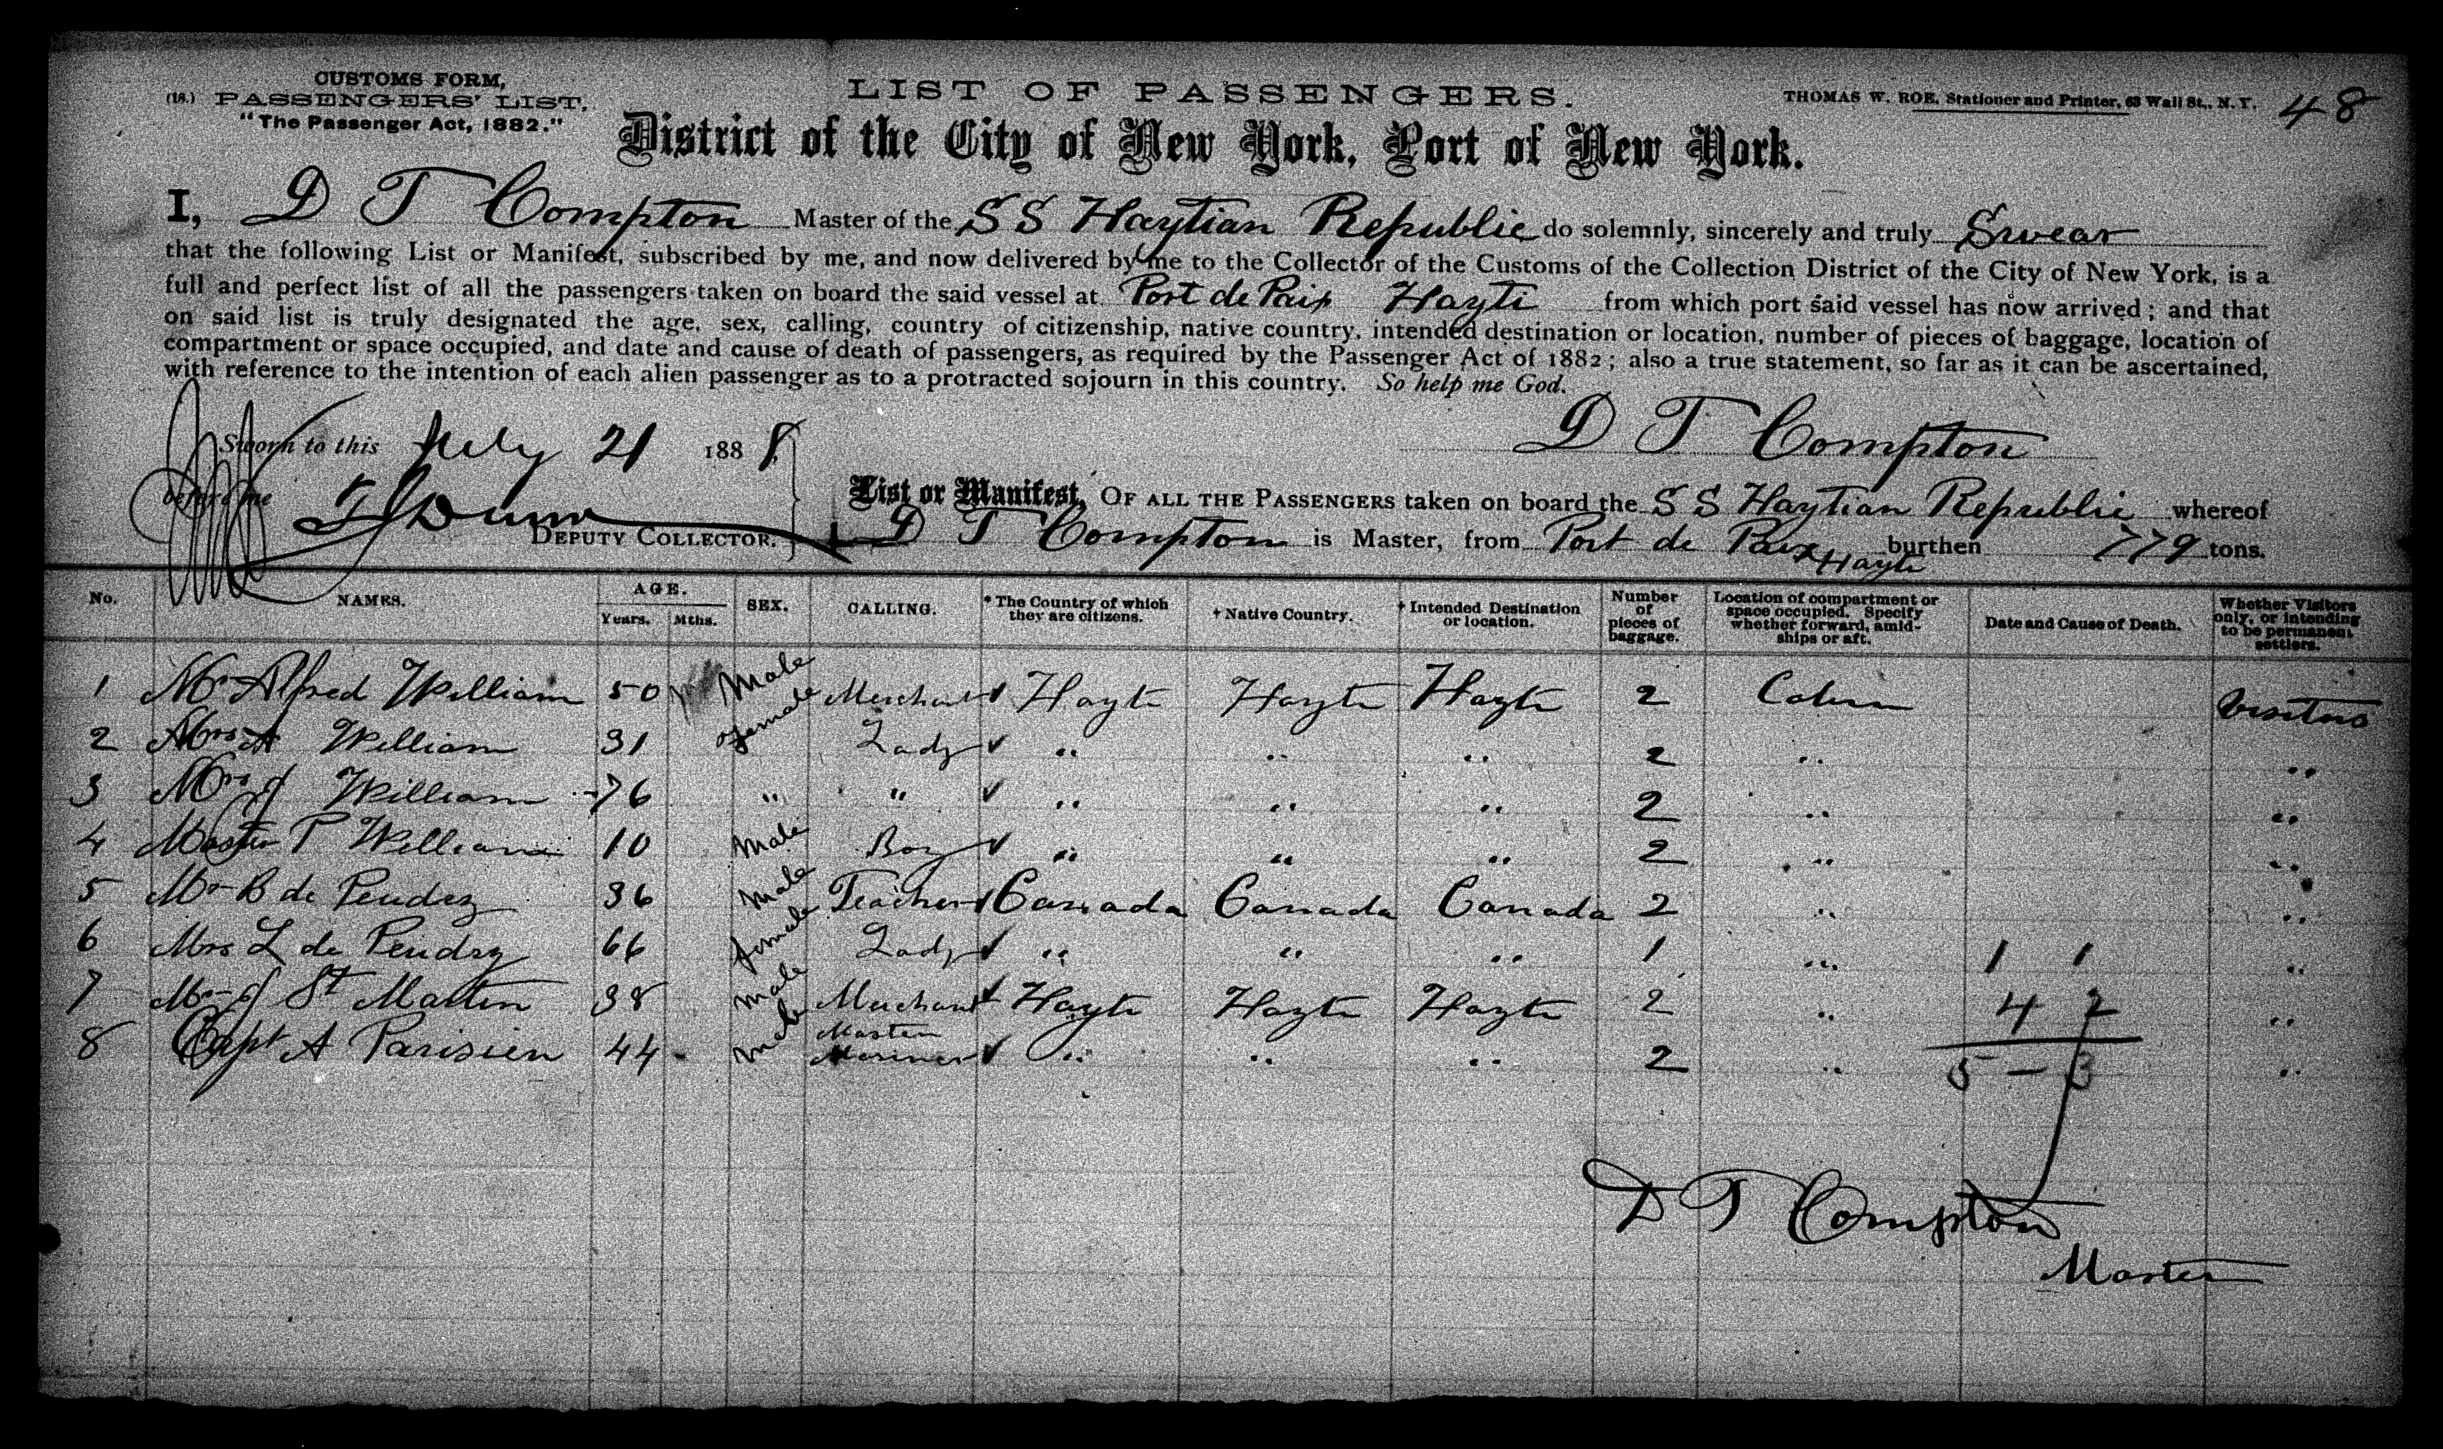 CUSTOMS FORM,
(18.) PASSENGERS' LIST.
"The Passenger Act, 1882."
LIST OF PASSENGERS.
THOMAS W. ROE, Stationer and Printer, 63 Wall St., N. Y.
48
District of the City of New York, Port of New York.
I, D T Compton Master of the S S Haytian Republic do solemnly, sincerely and truly Swear
that the following List or Manifest, subscribed by me, and now delivered by me to the Collector of the Customs of the Collection District of the City of New York, is a
full and perfect list of all the passengers taken on board the said vessel at Port de Paix Hayti from which port said vessel has now arrived; and that
on said list is truly designated the age, sex, calling, country of citizenship, native country, intended destination or location, number of pieces of baggage, location of
compartment or space occupied, and date and cause of death of passengers, as required by the Passenger Act of 1882; also a true statement, so far as it can be ascertained,
with reference to the intention of each alien passenger as to a protracted sojourn in this country. So help me God.
D T Compton
Sworn to this July 21 1888
before me
Dunn
DEPUTY COLLECTOR.
List or Manifest, OF ALL THE PASSENGERS taken on board the S S Haytian Republic whereof
D T Compton is Master, from Port de Paix Hayti burthen 779 tons.
No. NAMES. AGE. Years. Mths. SEX. CALLING. * The Country of which they are citizens. † Native Country. † Intended Destination or location. Number of pieces of baggage. Location of compartment or space occupied. Specify whether forward, amidships or aft. Date and Cause of Death. Whether Visitors only, or intending to be permanent settlers.
1 Mr Alfred William 50 Male Merchant Hayti Hayti Hayti 2 Cabin Visitors
2 Mrs A William 31 female Lady " " " 2 " "
3 Mrs J William 76 " " " " " 2 " "
4 Master P William 10 Male Boy " " " 2 " "
5 Mr B de Pendry 36 Male Teacher Canada Canada Canada 2 " "
6 Mrs L de Pendry 66 female Lady " " " 1 " 1 1 "
7 Mr J St Martin 38 Male Merchant Hayti Hayti Hayti 2 " 4 2 "
8 Capt A Parisien 44 male Master Mariner " " " 2 " 5 - 3 "
D T Compton
Master